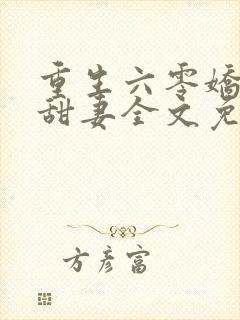 重生六零嬌
甜妻全文免
方彦富